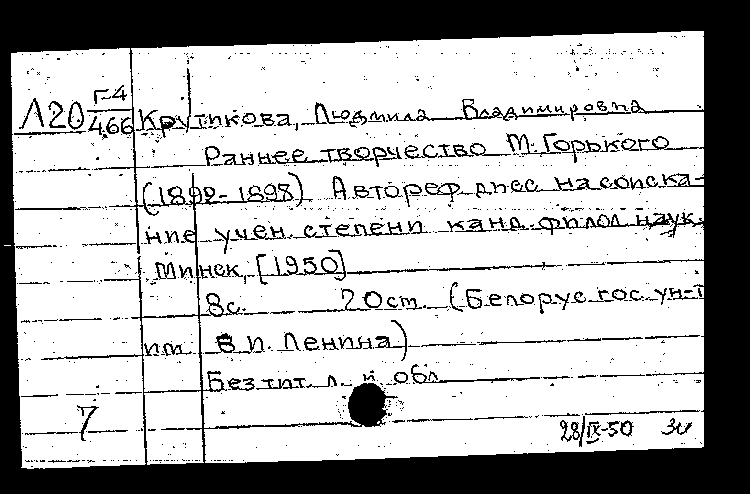 Л20 Г-4/466
Крутикова, Людмила Владимировна
Раннее творчество М. Горького
(1892-1898) Автореф дисс на соиска-
ние учен. степени канд. филол наук.
Минск, [1950]
8с. 20см. (Белорус. гос. ун-т
им В И. Ленина)
Без тит. л. и обл
7
28/IX-50